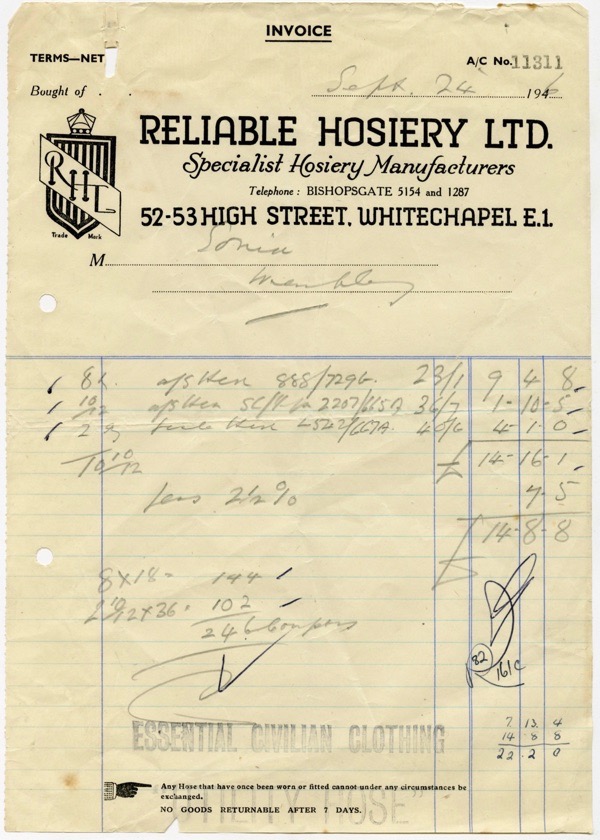 INVOICE
TERMS—NET
A/C No. 11311
Bought of . .
Sept. 24 194
RELIABLE HOSIERY LTD.
Specialist Hosiery Manufacturers
Telephone : BISHOPSGATE 5154 and 1287
52-53 HIGH STREET, WHITECHAPEL E.1.
RHL
Trade Mark
M Sonia
Wembley
8 888/729 23/1 9 4 8
10/12 2207/665A 36/7 1-10-5
2 4542/667A 40/6 4-1-0
10 10/12 £ 14-16-1
less 2½% 7-5
£ 14-8-8
8 x 18 = 144
2 10/12 x 36 = 102
246 Coupons
82
161C
ESSENTIAL CIVILIAN CLOTHING
7 13 4
14 8 8
22 2 0
Any Hose that have once been worn or fitted cannot under any circumstances be
exchanged.
NO GOODS RETURNABLE AFTER 7 DAYS.
"UTILITY HOSE"